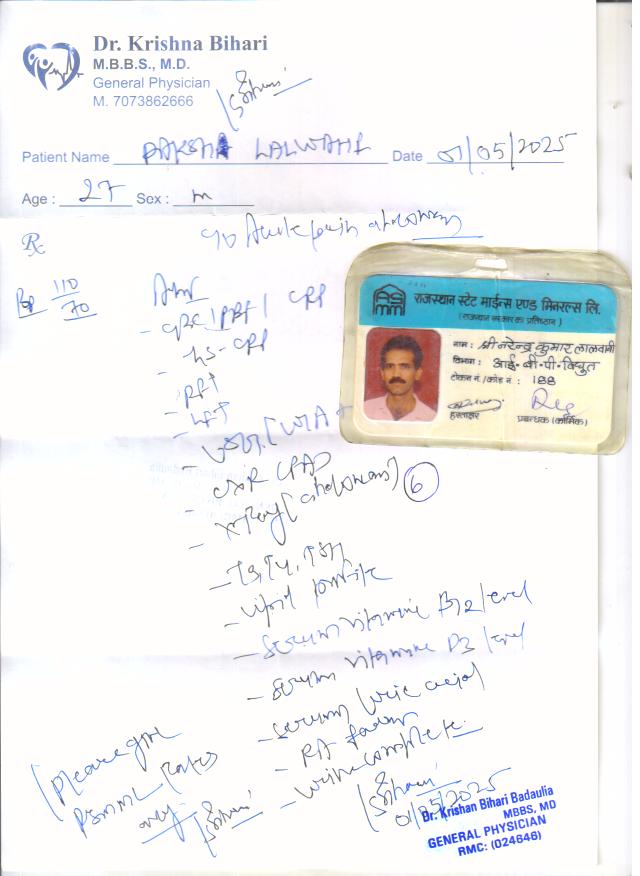 Dr. Krishna Bihari
M.B.B.S., M.D.
General Physician
M. 7073862666
Patient Name LALWANI Date 01/05/2025
Age : 27 Sex : m
Rx
c/o Acute pain abdomen
BP 110/70
राजस्थान स्टेट माईन्स एण्ड मिनरल्स लि.
(राजस्थान सरकार का प्रतिष्ठान)
नाम : श्री नरेन्द्र कुमार लालवानी
विभाग : आई॰बी॰पी॰विद्युत
टोकन नं./कोड नं : 188
हस्ताक्षर प्रबन्धक (कार्मिक)
- CBC / PBF / CRP
- hs-CRP
- RFT
- LFT
- USG (W/A
- CXR (PA)
- X-Ray (abdomen) 6
- T3, T4, TSH
- lipid profile
- Serum vitamine B12 level
- Serum vitamine D3 level
- Serum Uric acid
- RA factor
- urine complete
Please give
RSMML rates
only
01/05/2025
Dr. Krishan Bihari Badaulia
MBBS, MD
GENERAL PHYSICIAN
RMC: (024646)